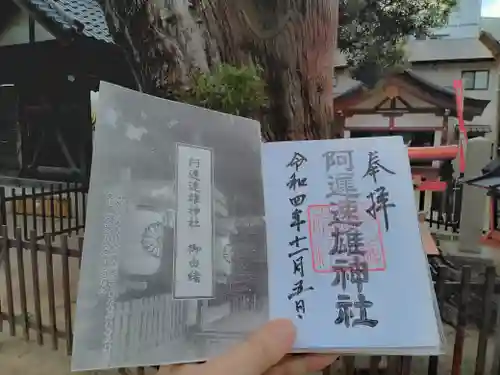 阿遅速雄神社 御由緒
奉拝
阿遅速雄神社
令和四年十一月五日